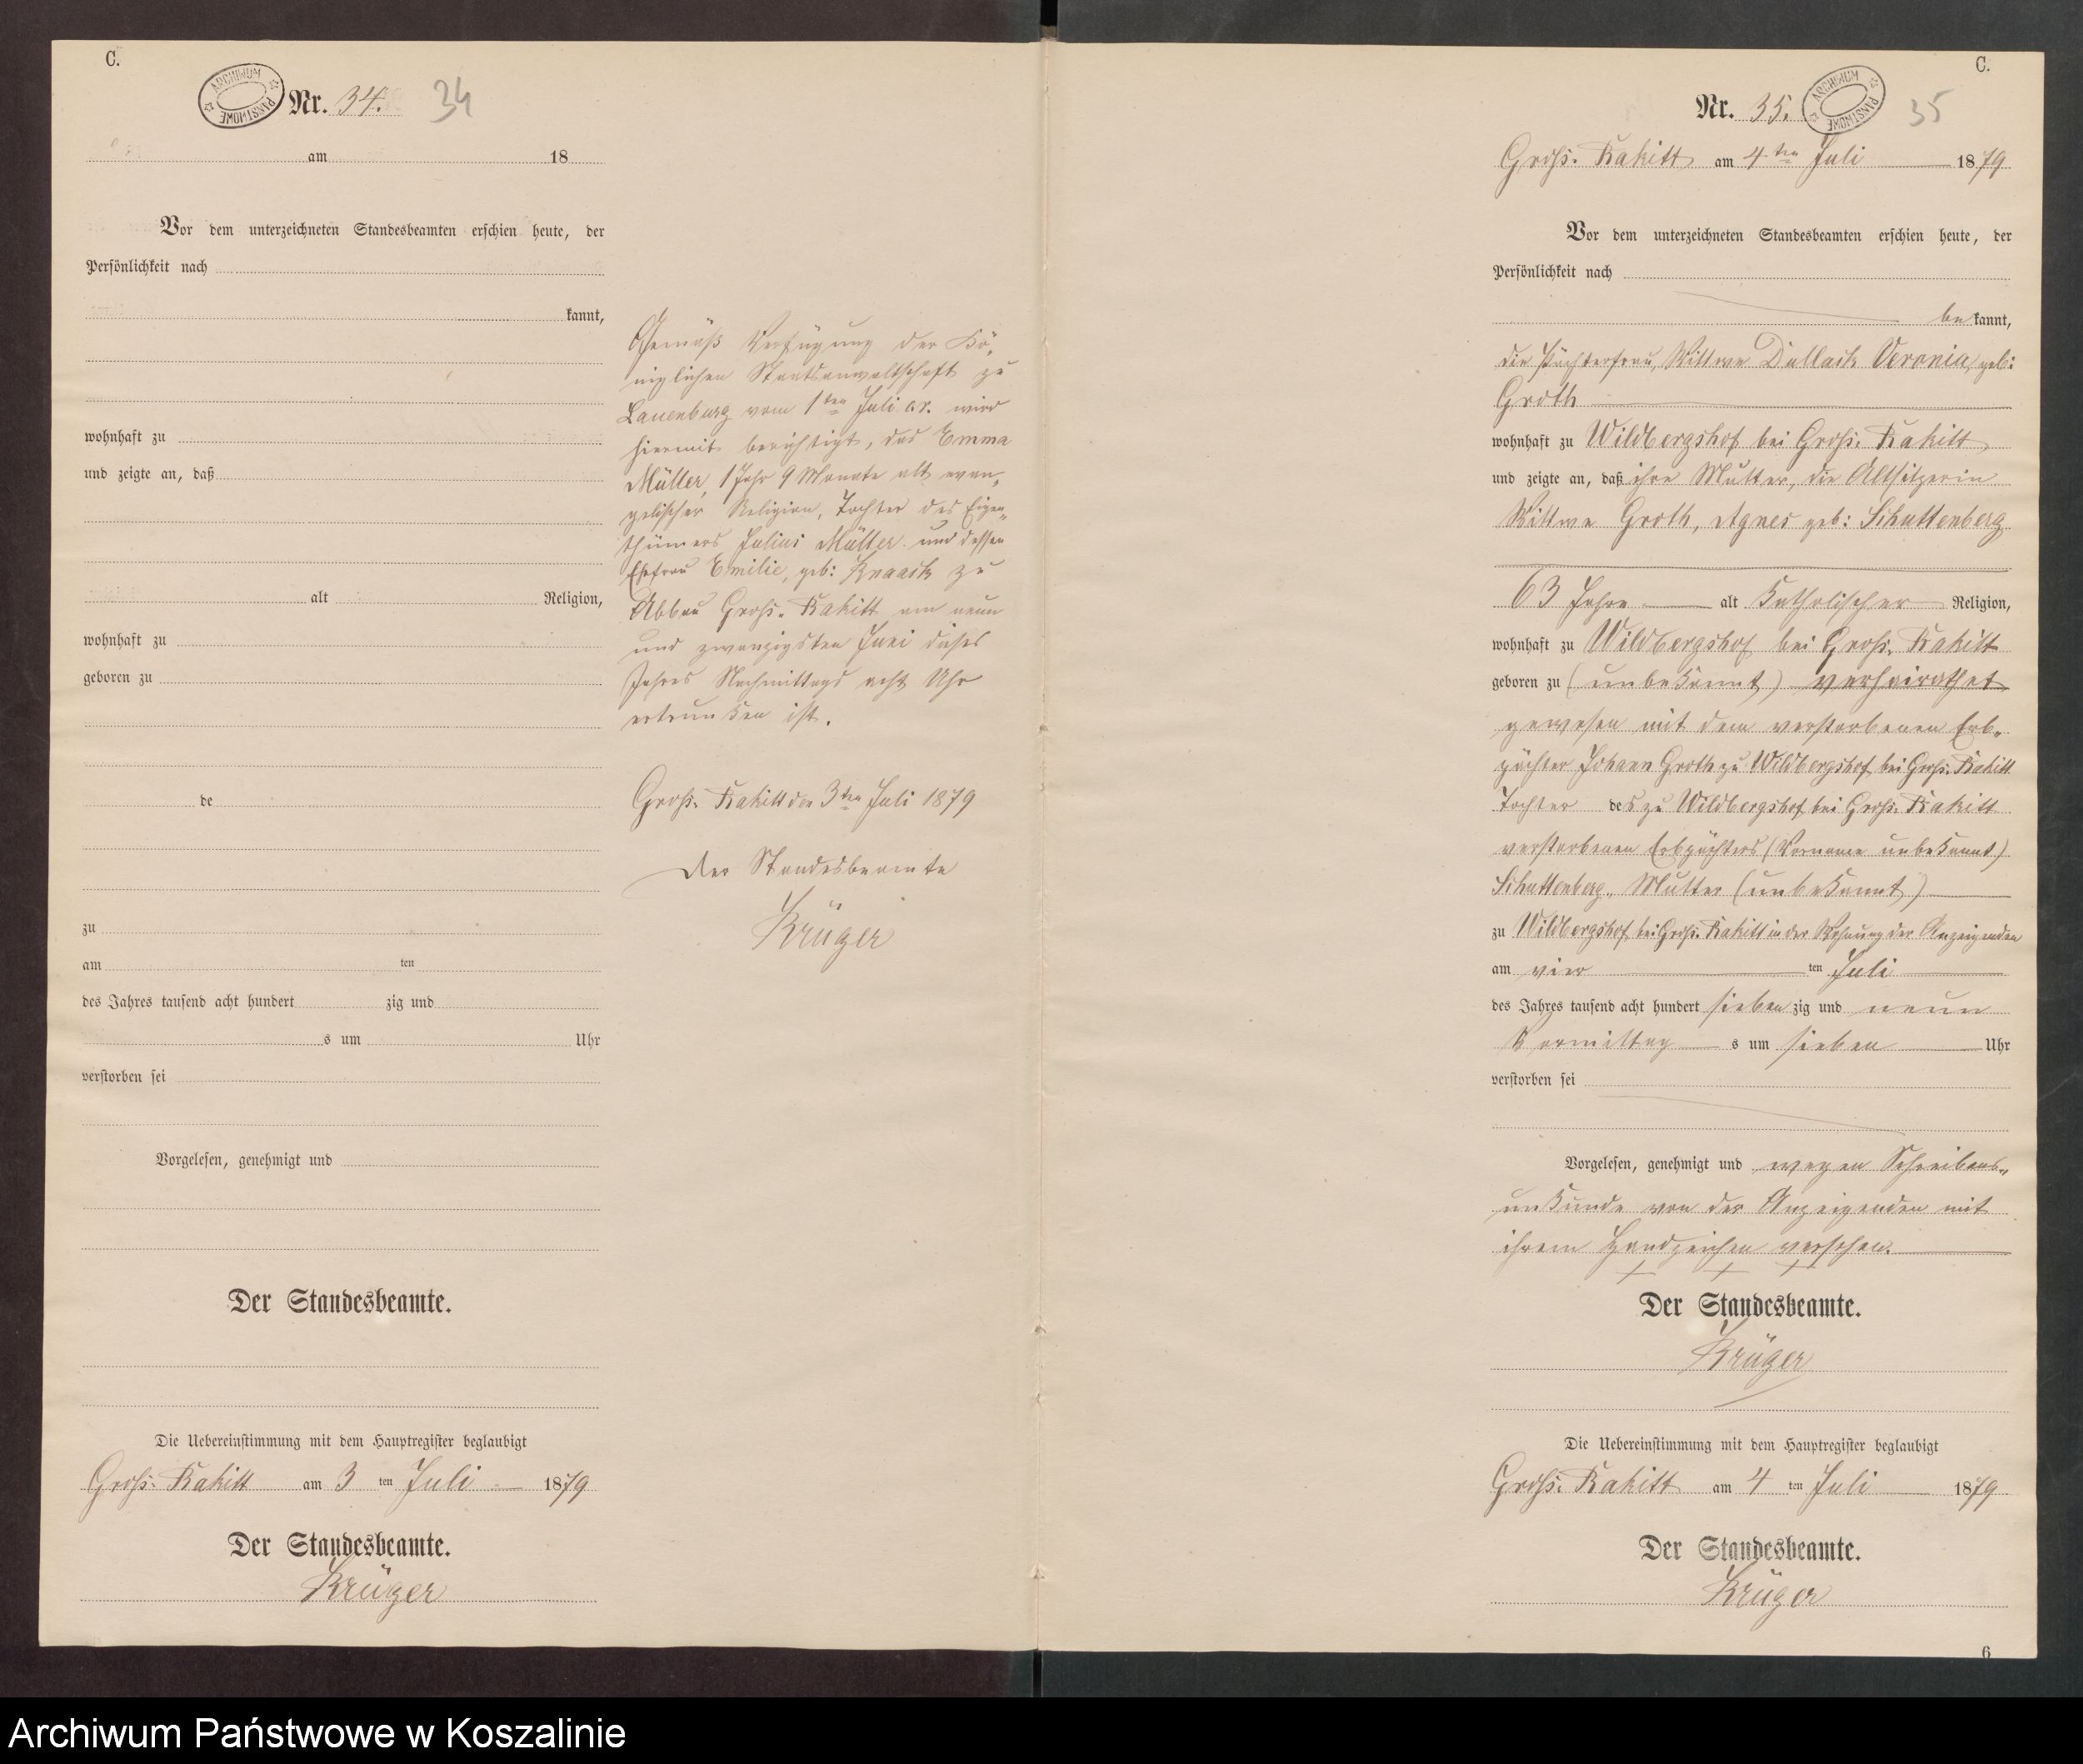 C.
ARCHIWUM PAŃSTWOWE
Nr. 34. 34
am 18
Vor dem unterzeichneten Standesbeamten erschien heute, der
Persönlichkeit nach
kannt,
wohnhaft zu
und zeigte an, daß
alt Religion,
wohnhaft zu
geboren zu
de
zu
am ten
des Jahres tausend acht hundert zig und
s um Uhr
verstorben sei
Vorgelesen, genehmigt und
Der Standesbeamte.
Die Uebereinstimmung mit dem Hauptregister beglaubigt
Groß-Rakitt am 3 ten Juli 1879
Der Standesbeamte.
Krüger
Gemäß Verfügung der Kö-
niglichen Staatsanwaltschaft zu
Lauenburg vom 1ten Juli cr. wird
hiermit berichtigt, das Emma
Müller, 1 Jahr 9 Monate alt, evan-
gelischer Religion, Tochter des Eigen-
thümers Julius Müller und dessen
Ehefrau Emilie, geb: Knaack zu
Abbau Groß-Rakitt am neun
und zwanzigsten Juni dieses
Jahres Nachmittags acht Uhr
ertrunken ist.
Groß-Rakitt den 3ten Juli 1879
Der Standesbeamte
Krüger
C.
Nr. 35. 35
ARCHIWUM PAŃSTWOWE
Groß-Rakitt am 4ten Juli 1879
Vor dem unterzeichneten Standesbeamten erschien heute, der
Persönlichkeit nach
bekannt,
die Pächterfrau, Wittwe Dullack Veronia, geb:
Groth
wohnhaft zu Wildbergshof bei Groß-Rakitt,
und zeigte an, daß ihre Mutter, die Altsitzerin
Wittwe Groth, Agnes geb: Schuttenberg
63 Jahre alt Katholischer Religion,
wohnhaft zu Wildbergshof bei Groß-Rakitt
geboren zu (unbekannt) verheirathet
gewesen mit dem verstorbenen Erb-
pächter Johann Groth zu Wildbergshof bei Groß-Rakitt
Tochter des zu Wildbergshof bei Groß-Rakitt
verstorbenen Erbpächters (Vorname unbekannt)
Schuttenberg, Mutter (unbekannt)
zu Wildbergshof bei Groß-Rakitt in der Wohnung der Anzeigenden
am vier ten Juli
des Jahres tausend acht hundert sieben zig und neun
Vormittag s um sieben Uhr
verstorben sei
Vorgelesen, genehmigt und wegen Schreibens-
unkunde von der Anzeigenden mit
ihrem Handzeichen versehen.
+ + +
Der Standesbeamte.
Krüger
Die Uebereinstimmung mit dem Hauptregister beglaubigt
Groß-Rakitt am 4 ten Juli 1879
Der Standesbeamte.
Krüger
6
Archiwum Państwowe w Koszalinie